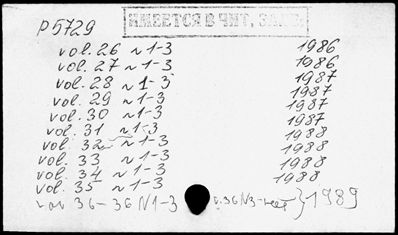 P5729
ИМЕЕТСЯ В ЧИТ. ЗАЛЕ
vol. 26 ~ 1-3 1986
vol. 27 ~ 1-3 1986
vol. 28 ~ 1-3 1987
vol. 29 ~ 1-3 1987
vol. 30 ~ 1-3 1987
vol. 31 ~ 1-3 1987
vol. 32 ~ 1-3 1988
vol. 33 ~ 1-3 1988
vol. 34 ~ 1-3 1988
vol. 35 ~ 1-3 1988
36-36 N1-3 v.36 N3-нет } 1989